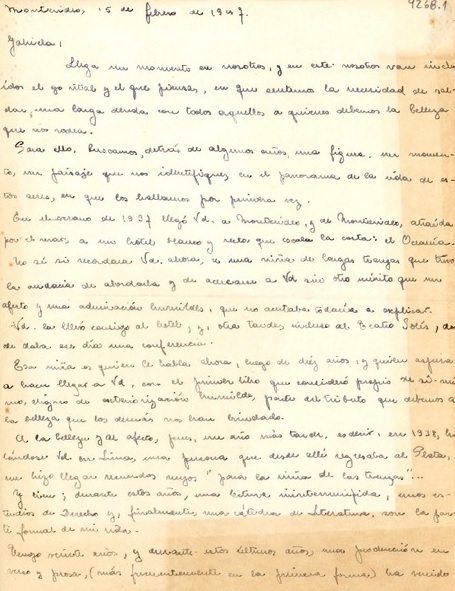 4268.1
Montevideo, 15 de febrero de 1947.
Gabriela:
Llega un momento en nosotros, y en este nosotros van inclu
idos el yo vital y el que piensa, en que sentimos la necesidad de sal
dar una larga deuda con todos aquellos a quienes debemos la belleza
que nos rodea.
Para ello, buscamos, detrás de algunos años, una figura, un momen
to, un paisaje que nos identifiquen en el panorama de la vida de es
tos seres, en que los hallamos por primera vez.
En el verano de 1937 llegó Vd. a Montevideo, y de Montevideo,
por el mar, a un hotel blanco y que escala la costa: el Oceanía.
No sé si recordará Vd. ahora, a una niña de largas trenzas que tuvo
la audacia de abordarla y de acercarse a Vd sin otro mérito que un
afecto y una admiración humildes, que no acertaba todavía a explicar.
Vd. la llevó consigo al hotel, y, otra tarde, incluso al Teatro Solís, don
de daba ese día una conferencia.
Esa niña es quien le habla ahora, luego de diez años, y quien espera
hacer llegar a Vd. con el primer libro que consideró propio de sí mis
mo, digno de exteriorización humilde, parte del tributo que debemos a
la belleza que los demás nos han brindado.
A la belleza y al afecto, pues, un año más tarde, es decir, en 1938, ha
llándose Vd en Lima, una persona que desde allí regresaba al Plata,
me hizo llegar recuerdos suyos "para la niña de las trenzas"...
Y bien; durante estos años, una lectura ininterrumpida, unos es
tudios de Derecho y, finalmente, una cátedra de Literatura, son la par
te formal de mi vida.
Tengo veinte años, y durante estos últimos años, una producción en
verso y prosa, (más frecuentemente en la primera forma) ha venido